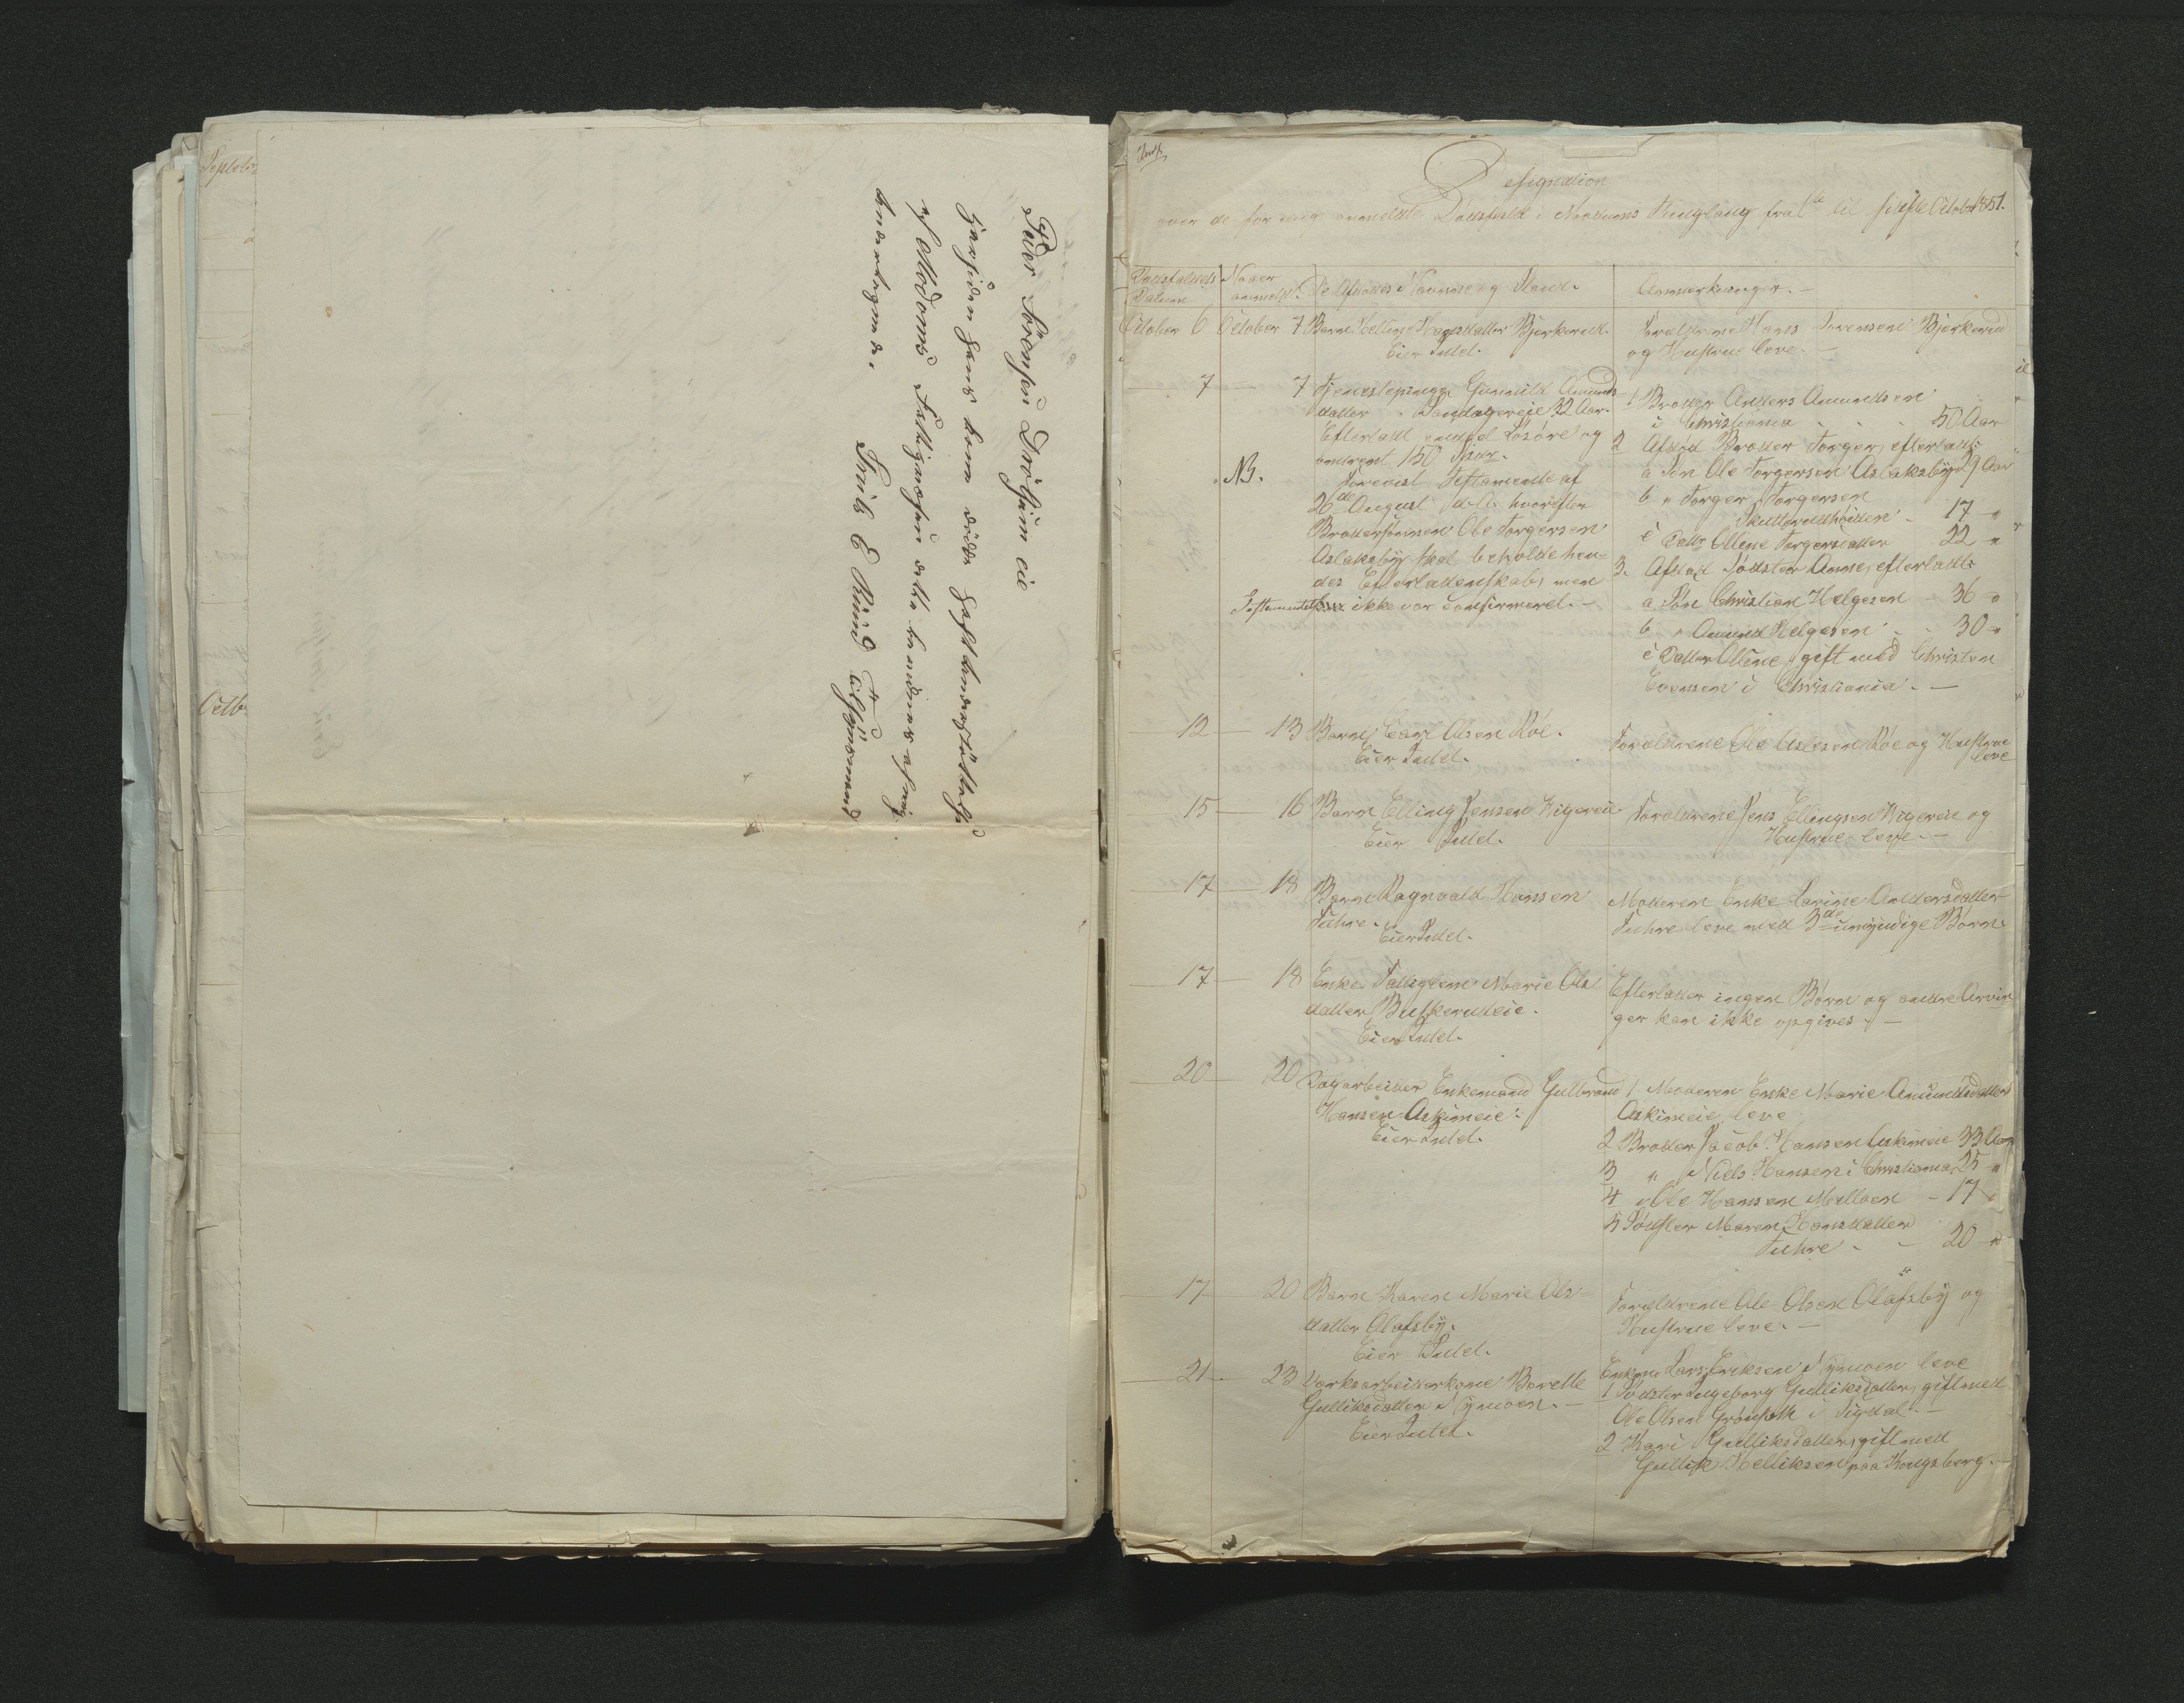 Septebr
Octb
Peder Sörensen Drolsum eie
hans
af Modoms
underlegnede.
Truls E Rud
Designation
over de for mig anmeldte Dødsfald i Modums Thinglaug fra 1ste til sidste Octobr 1851.
Dødsfaldets Datum
Naar anmeldt.
De Afdødes Navne og Stand.
Anmærkninger.
October 6 October 7 Barn Helline Hansdatter Bjerkerud.
Eier Intet.
Forældrene Hans Sorensen Bjerkerud
og Hustrue leve.
7 7 Tjenestepinge Gunnild Amunds
datter Sandagereie 32 Aar.
Efterladt endeel Løsøre og
omtrent 150 Spdr.
NB. Forevist Testamente af
26de August d.A. hvorefter
Brodersønnen Ole Torgersen
Aslaksby skal beholde hen-
des Efterladenskab, men
Testamentet ikke var confirmeret.
1 Broder Anders Amundsen
i Christiania 50 Aar
2 Afdød Broder Torger, efterladt:
a Søn Ole Torgersen Aslaksby 29 Aar
b " Torger Torgersen
Skutterudhoiden 17 "
c Dattr Ollene Torgersdatter 22 "
3. Afdød Sødster Anne, efterladt:
a Søn Christian Helgesen 36 "
b " Amund Helgesen 30 "
c Datter Ollene gift med Christen
Evensen i Christiania.
12 13 Barn Carl Olsen Roe.
Eier Intet.
Forældrene Ole Aslesen Roe og Hustrue
leve
15 16 Barn Elling Jensen Kigereie
Eier Intet.
Forældrene Jens Ellingsen Kigereie og
Hustrue leve.
17 18 Barn Ragnvald Hansen
Fuhre.
Eier Intet.
Moderen Enke Karine Andersdatter
Fuhre leve med 3de umyndige Børn.
17 18 Enke Fattiglem Marie Ols
datter Buskerudeie.
Eier Intet.
Efterlader ingen Børn og andre Arvin
ger kan ikke opgives.
20 20 Dagarbeider Enkemand Gulbrand
Hansen Askimeie.
Eier Intet.
1 Moderen Enke Marie Amundsdatter
Askimeie leve
2 Broder Jacob Hansen Askimeie 33 Aar
3 " Niels Hansen i Christiania 25 "
4 " Ole Hansen Melloen 17 "
5 Södster Maren Hansdatter
Fuhre 20 "
17 20 Barn Karen Marie Ols-
datter Olafsby.
Eier Intet.
Forældrene Ole Olsen Olafsby og
Hustrue leve.
21 23 Værksarbeiderkone Berette
Gulliksdatter Nymoen.
Eier Intet.
Enkem: Lars Eriksen Nymoen leve
1 Sødster Ingeborg Gulliksdatter, gift med
Ole Olsen i Sigdal.
2 Kari Gulliksdatter, gift med
Gullik Helliksen paa Kongsberg.